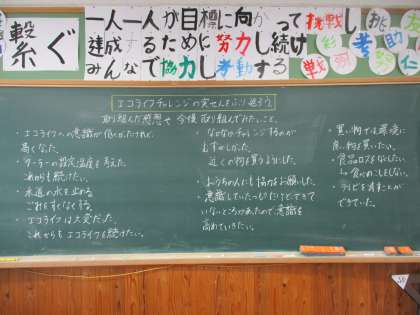 繋ぐ
一人一人が目標に向かって挑戦し
達成するために努力し続け
みんなで協力し考動する
挑 友
彩 考 助
戦 羽 努 仁
エコライフチャレンジの実せんをふり返ろう。
取り組んだ感想や今後取り組んでみたいこと。
・エコライフへの意識が低かったけれど、
高くなった。
・クーラーの設定温度を考えた。
これからも続けたい。
・水道の水を止める
ごみをすくなくする。
・エコライフは大変だった。
これからもエコライフを続けたい。
・なかなかチャレンジするのが
むずかしかった。
近くの物を買うようにした。
・おうちの人にも協力をお願いした。
・意識していたつもりだけどできて
いないところがあったので意識を
高めていきたい。
・買い物では環境に
良い物を買いたい。
・食品ロスをなしたい
→食べのこしもしない。
・テレビを消すことが
できていた。